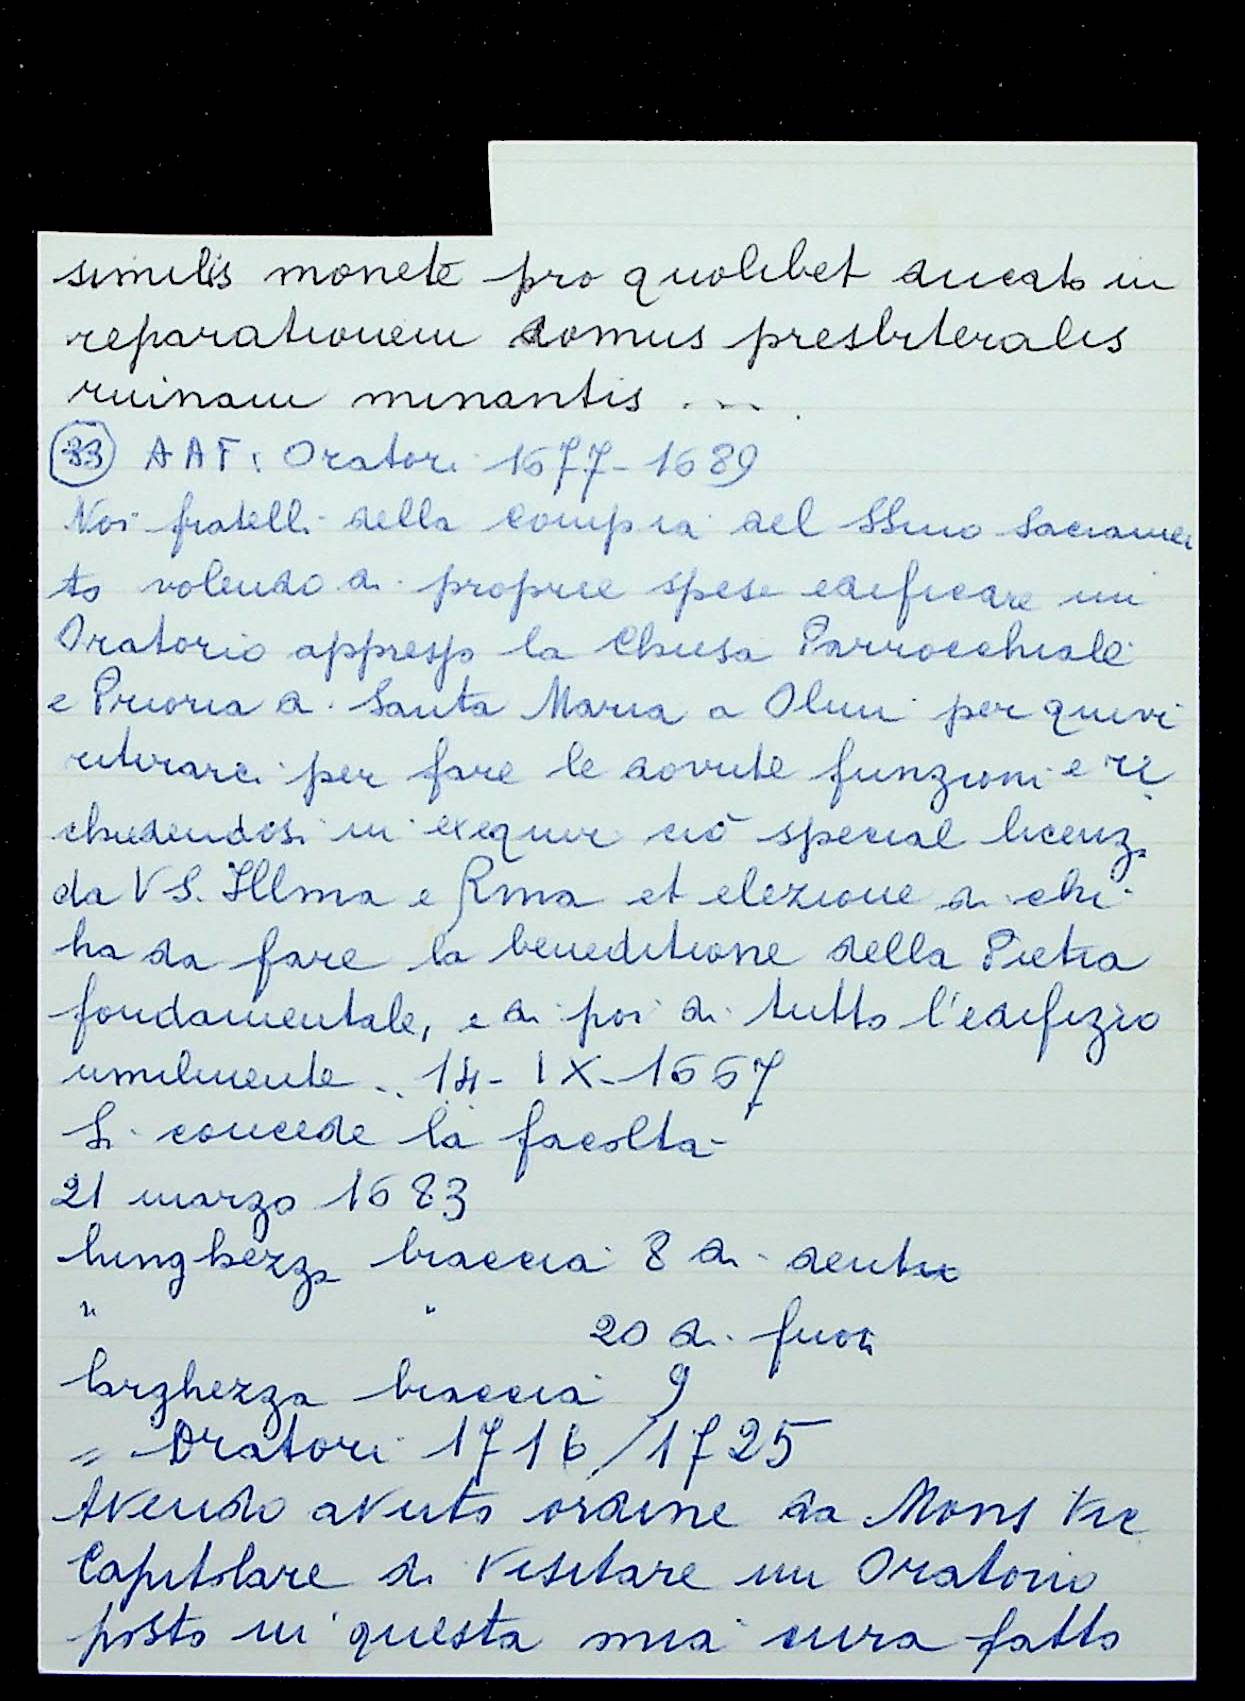 similis monete pro quolibet ducato in
reparationem domus presbiteralis
ruinam minantis ....
33 AAF: Oratori 1677-1689
Noi fratelli della Compia del SSmo Sacramen
to volendo di proprie spese edificare un
Oratorio appresso la Chiesa Parrocchiale
e Prioria di Santa Maria a Olmi per quivi
ritirarci per fare le dovute funzioni e ri
chiedendosi in exequir ciò special licenza
da VS. Illma e Rma et elezione di chi
ha da fare la beneditione della Pietra
fondamentale, e di poi di tutto l'edifizio
umilmente .. 14-IX-1667
Si concede la facolta-
21 marzo 1683
lunghezza braccia 8 di dentro
" " 20 di fuori
larghezza braccia 9
= Oratori 1716/1725
Avendo avuto ordine da Mons Vic
Capitolare di visitare un Oratorio
posto in questa mia cura fatto